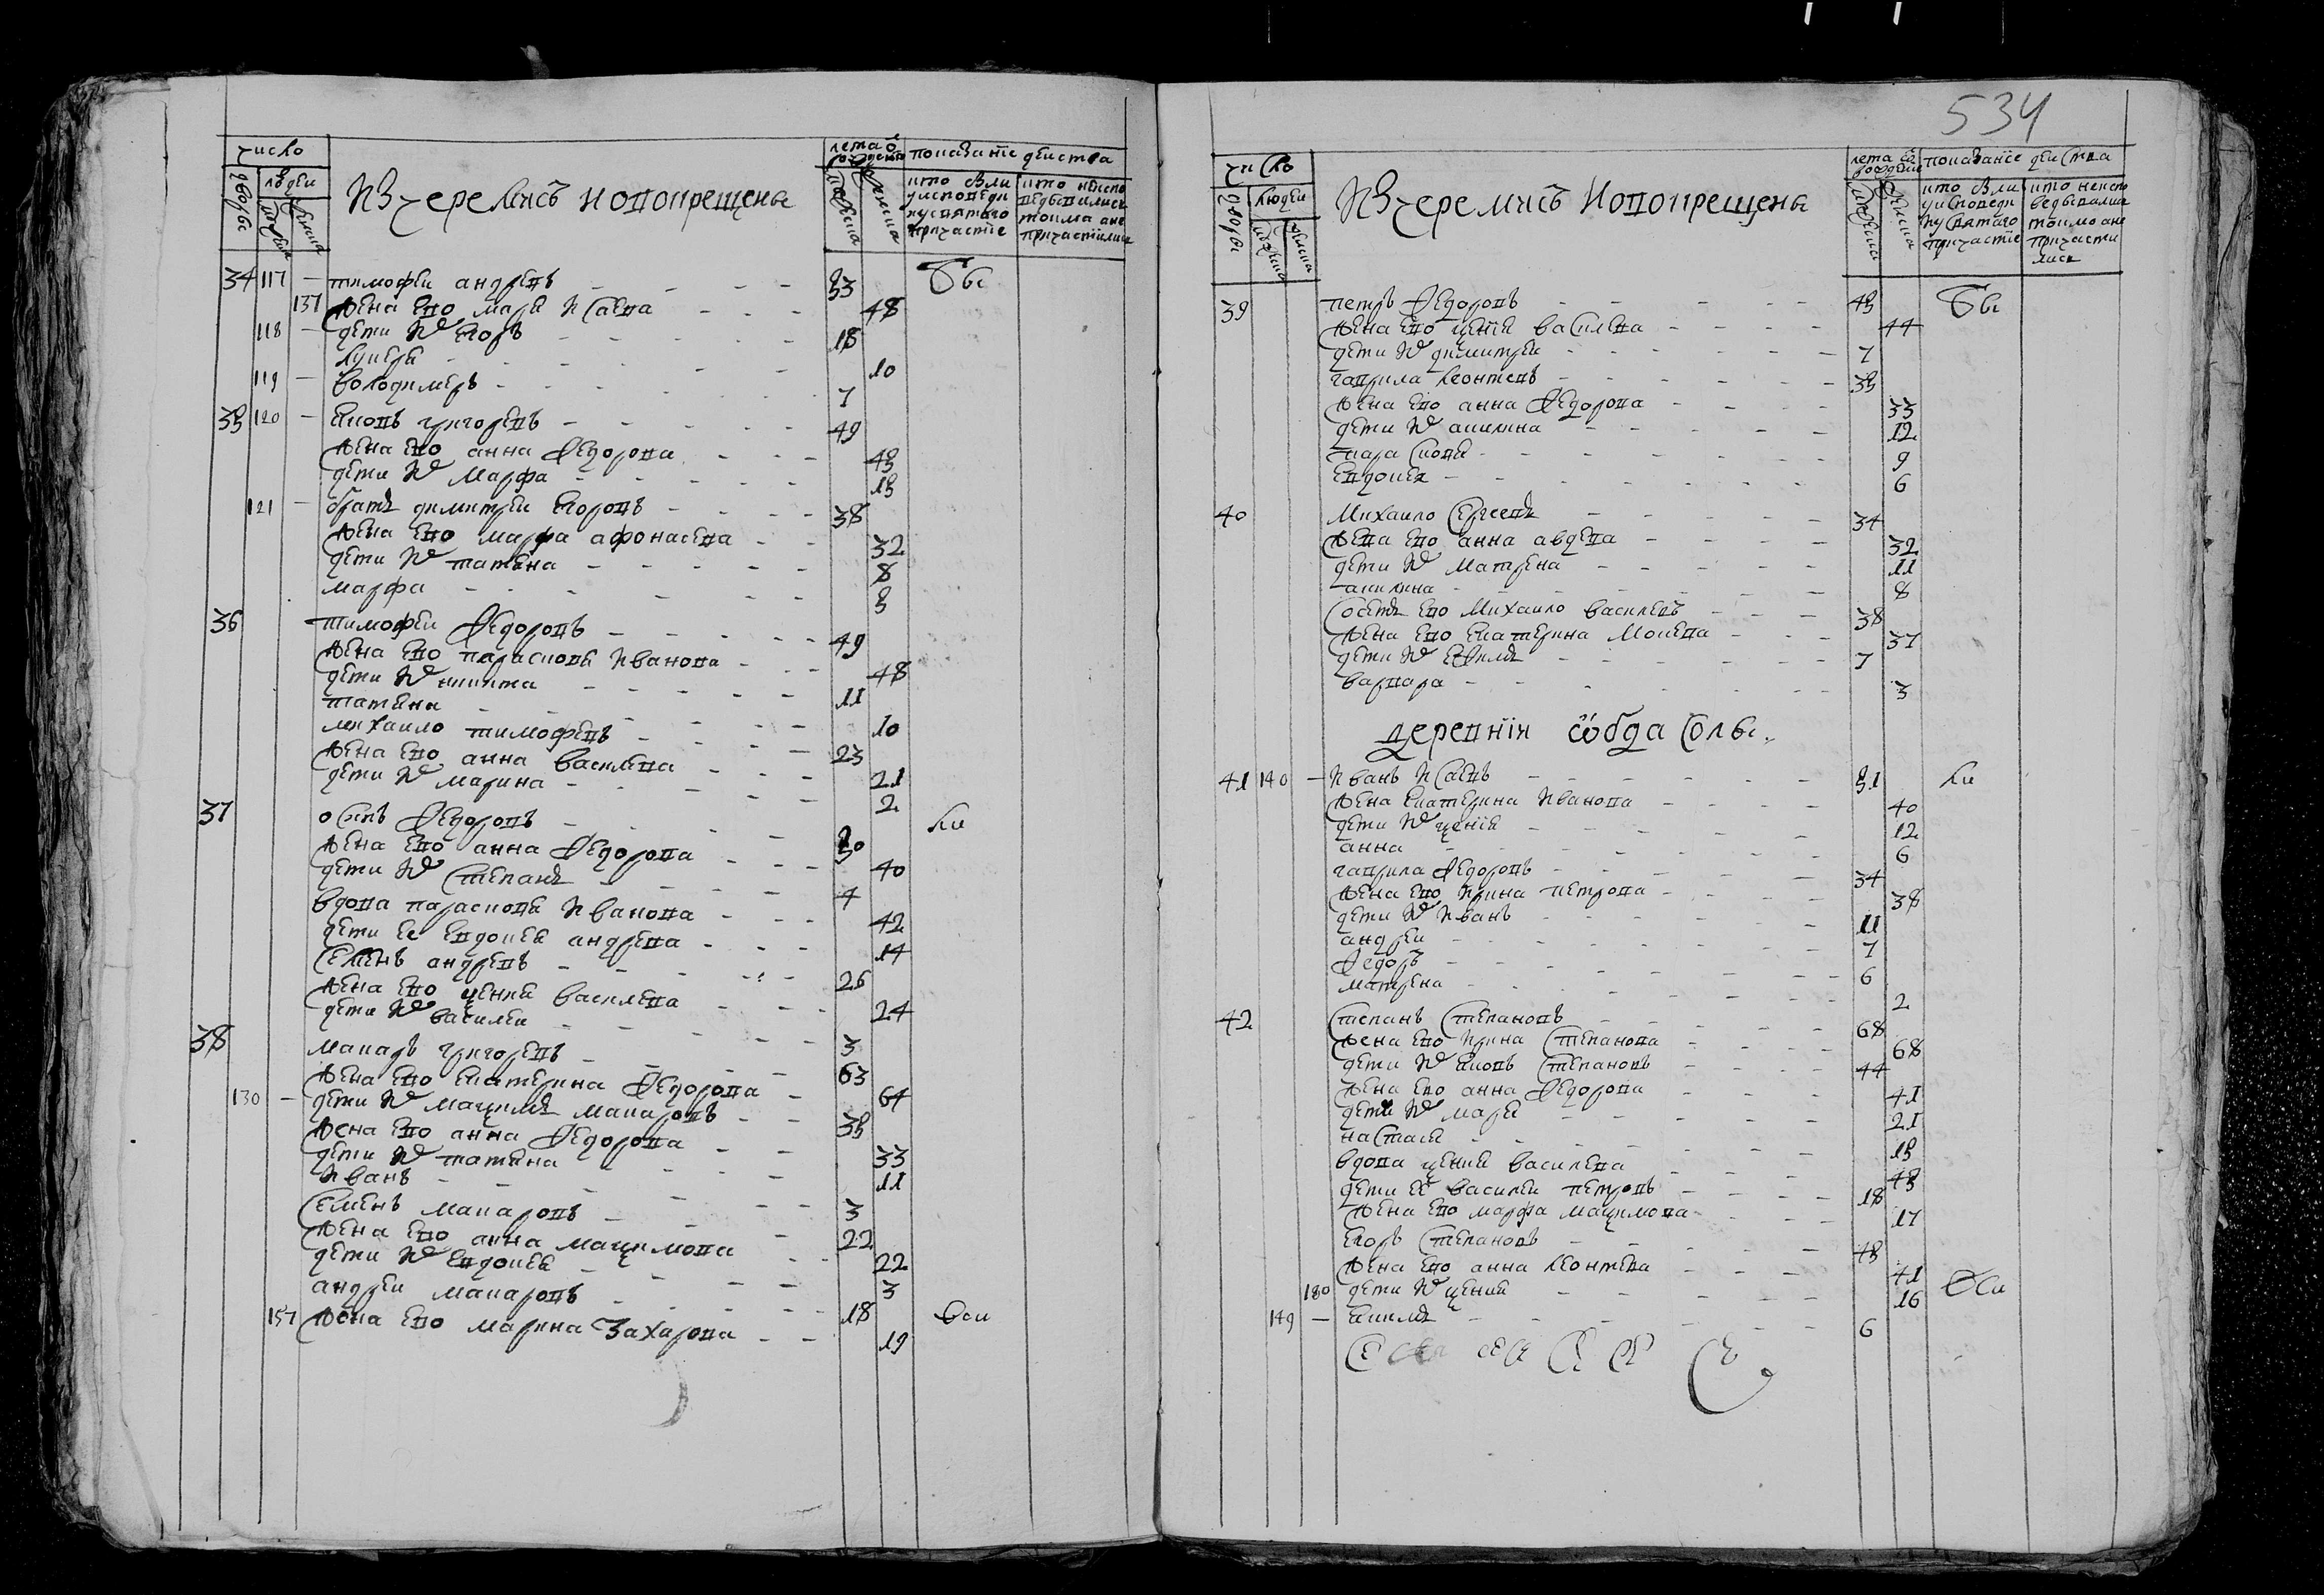 число
дворы
людеи
мужеска
женска
Изчеремисъ новокрещены
лета ѿ рождения
мужеска
женска
показание деиства
кто были уисповеди иусвятаго причастие
кто неисповедывались токмо ане причастились
34 117 — тимофеи андреевъ 53 Бы
137 жена ево маря исаева 48
118 — дети их егоръ 18
лукеря 10
119 — володимеръ 7
35 120 — яковъ григоревъ 49
жена ево анна федорова 45
дети их марфа 15
121 — братъ димитреи егоровъ 38
жена ево марфа афонасева 32
дети их татяна 8
марфа 5
36 тимофеи федоровъ 49
жена ево парасковя иванова 48
дети их никита 11
татяна 10
михаило тимофеевъ 23
жена ево анна василева 21
дети их марина 2
37 осипъ федоровъ 50 ли
жена ево анна федорова 40
дети их степанъ 4
вдова парасковя иванова 42
дети ее евдокея андреева 14
семенъ андреевъ 26
жена ево ѯения василева 24
дети их василеи 3
38 макаръ григоревъ 63
жена ево екатерина федорова 64
130 — дети их маѯимъ макаровъ 35
жена ево анна федорова 33
дети их татяна 11
иванъ 3
семенъ макаровъ 22
жена ево анна маѯимова 22
дети их евдокея 3
андреи макаровъ 18
157 жена ево марина захарова 19 вси
534
число
дворы
людеи
мужеска
женска
Изчеремисъ Новокрещены
лета ѿ рождения
мужеска
женска
показание деиства
кто были уисповеди иусвятаго причастие
кто неисповедывались токмо ане причастились
39 петръ федоровъ 45 Бы
жена ево ѯения василева 44
дети их димитреи 7
гаврила леонтевъ 35
жена ево анна федорова 33
дети их акилина 12
парасковя 9
евдокея 6
40 Михаило сергеевъ 34
жена ево анна авдеева 32
дети их матрена 11
акилина 8
соседъ ево Михаило василевъ 38
жена ево екатерина мокеева 37
дети их ефимъ 7
варвара 3
деревнии соѡбда солы
41 140 — иванъ исаевъ 51 ли
жена екатерина иванова 40
дети их ѯения 12
анна 6
гаврила федоровъ 34
жена ево ирина петрова 38
дети их иванъ 11
андреи 7
федоръ 6
матрена 2
42 степанъ степановъ 68
жена ево ирина степанова 68
дети их яковъ степановъ 44
жена ево анна федорова 41
дети их маря 21
настася 15
вдова ѯения василева 45
дети ее василеи петровъ 18
жена ево марфа маѯимова 17
егоръ степановъ 45
жена ево анна леонтева 41
180 дети их ѯения 16 вси
149 — екимъ 6